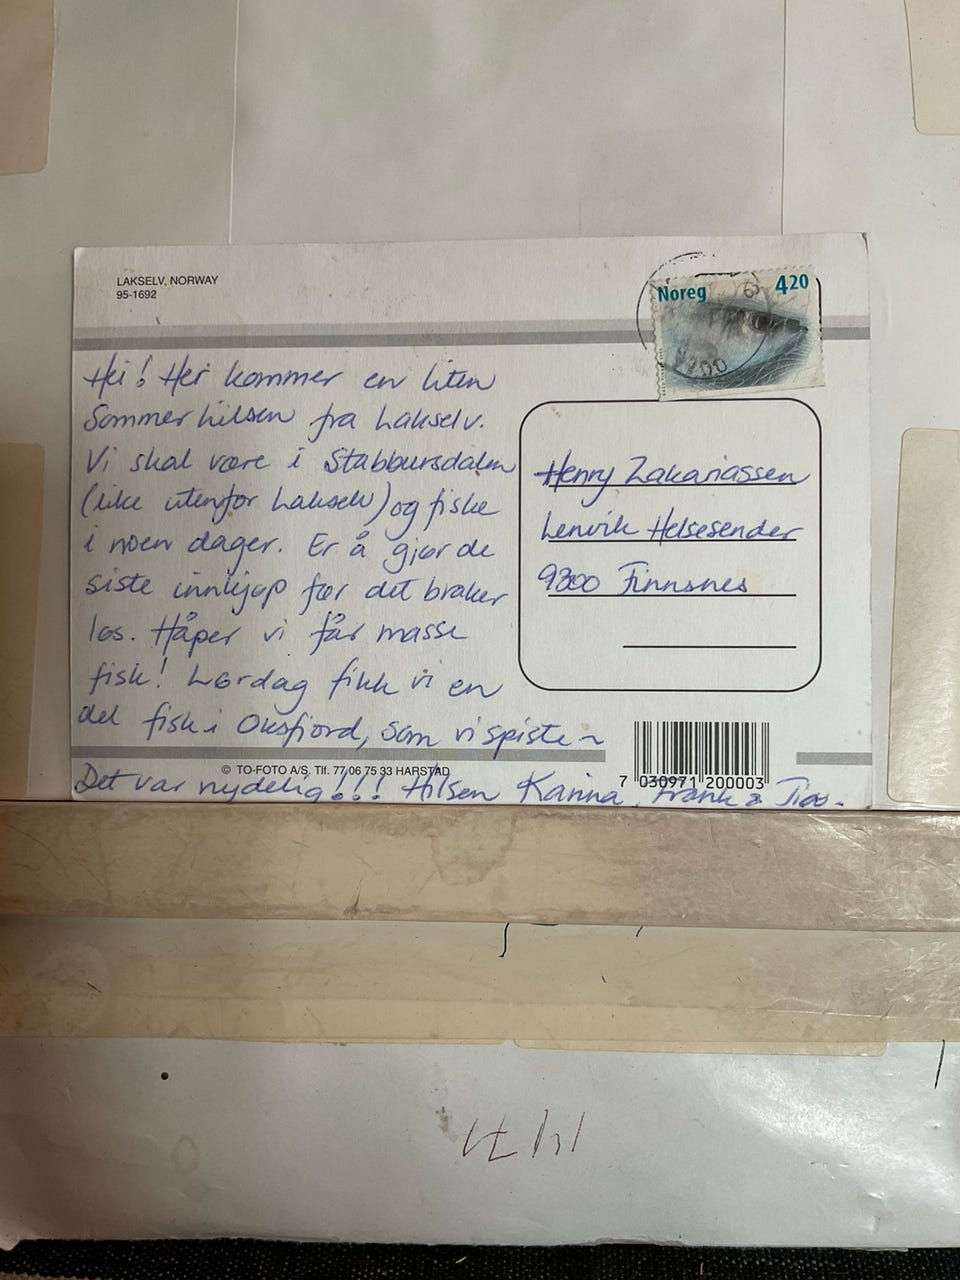 LAKSELV, NORWAY
95-1692
Noreg 420
Hei! Her kommer en liten
Sommerhilsen fra Lakselv.
Vi skal være i Stabbursdalen
(like utenfor Lakselv) og fiske
i noen dager. Er å gjør de
siste innkjøp før det braker
løs. Håper vi får masse
fisk! Lørdag fikk vi en
del fisk i Oksfjord, som vi spiste ~
Det var nydelig!!! Hilsen Karina, Frank &
Henry Zakariassen
Lenvik Helsesenter
9300 Finnsnes
© TO-FOTO A/S. Tlf. 77 06 75 33 HARSTAD
7 030971 200003